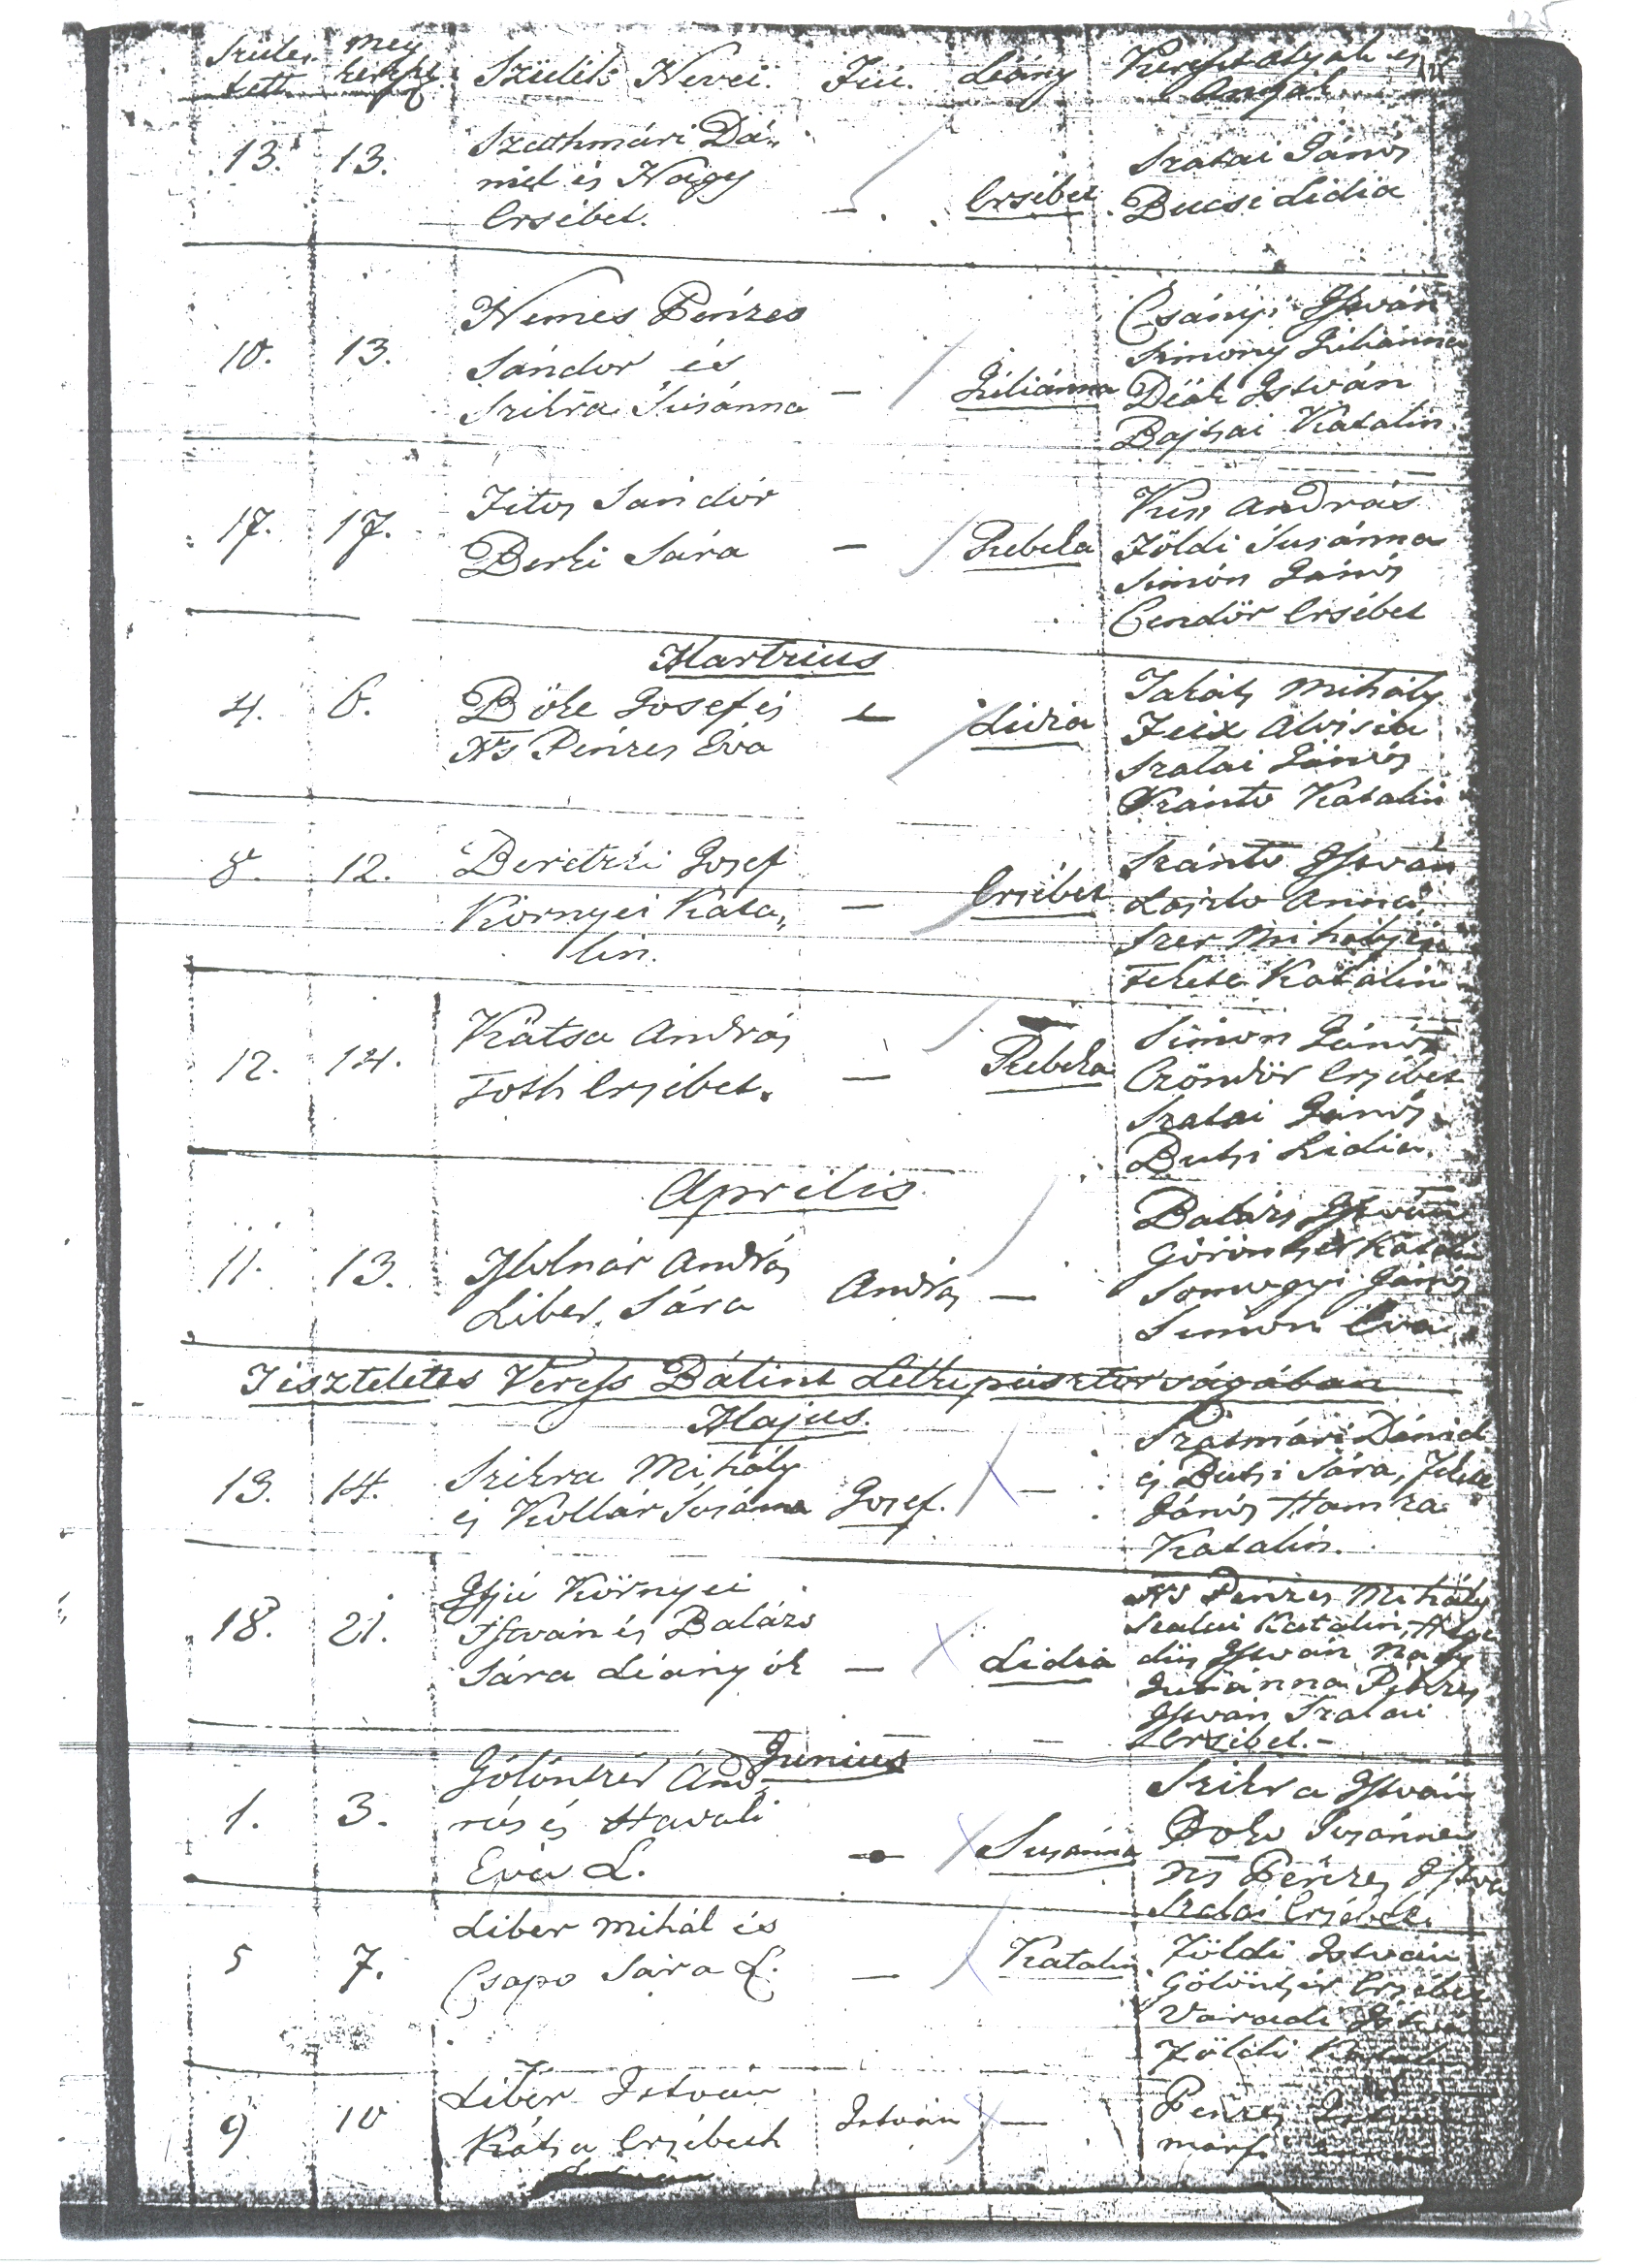 125
Szüle- meg Szülék Nevei. Fiú. Leány Keresztatyák és
tett. keresz. Anyák
13. 13. Szathmári Dá„
niel és Nagy
Ersébet. — Ersébet
Szalai János
Bucsi Lidia
10. 13. Nemes Pénzes
Sándor és
Szikra Susánna — Juliánna
Csányi István
Simony Juliánna
Deák István
Bajtsai Katalin
17. 17. Fitos Sandór
Berki Sára — Rebeka
Kiss András
Földi Susánna
Simon János
Cendör Ersébet
Martzius
4. 6. Böke Josef és
Ns Pénzes Eva — Lidia
Takáts Mihály
Szalai János
Szánto Katalin
8. 12. Beretzki Josef
Környei Kata„
lin. — Ersébet
Szánto István
Laszlo Anna
Szer Mihály és
Fekete Katalin
12. 14. Kátsa András
Toth Ersébet. — Rebeka
Simon János
Czöndör Ersébet
Szalai János
Butsi Lidia.
Aprilis
11. 13. Molnár András
Liber Sára András —
Balázs István
Göröntsér Katalin
Somogyi János
Simon Eva
Tiszteletes Veress Bálint Lelkipásztorságában
Majus.
13. 14. Szikra Mihály
és Kollár Susánna Josef. —
Szatmári Dániel
és Butsi Sára, Fekete
János Hamza
Katalin.
18. 21. Ifjú Környei
István és Balázs
Sára Leányok — Lidia
Ns Pénzes Mihály
Szalai Katalin, Hege
düs István Nagy
Juliánna Pénzes
István Szalai
Ersébet. –
Junius
1. 3. Gölöntzér And
rás és Havali
Eva L. — Susánna
Szikra István
Boko Susánna
Ns Pénzes István
Szalai Ersébet.
5 7. Liber Mihál és
Csapo Sára L. — Katalin
Földi István
Gölöntsér Ersébet
Varadi István
Földi Katalin
9 10 Liber István
Kátsa Ersébeth István —
Pénzes István